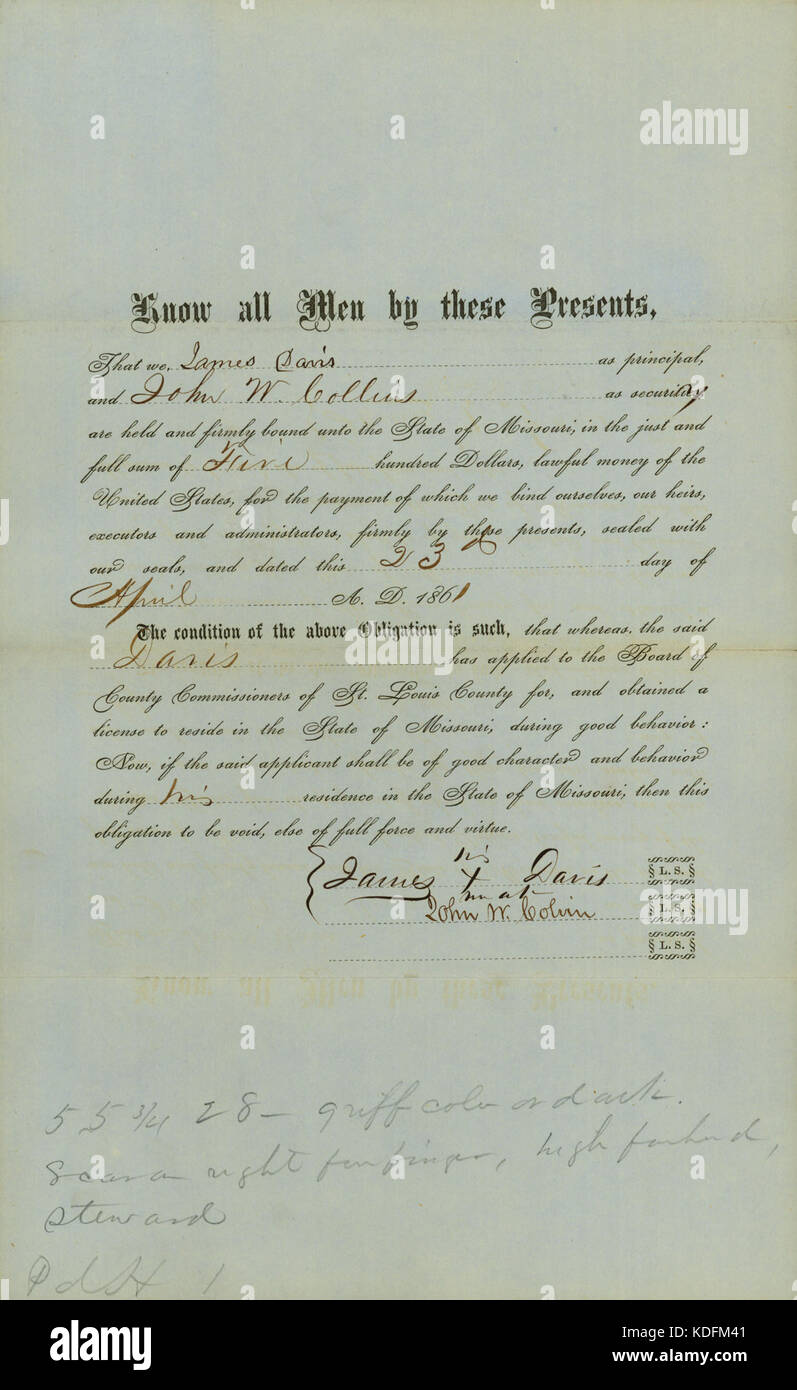 Know all Men by these Presents,
That we, James Davis as principal,
and John W. Collins as security
are held and firmly bound unto the State of Missouri, in the just and
full sum of Five hundred Dollars, lawful money of the
United States, for the payment of which we bind ourselves, our heirs,
executors and administrators, firmly by these presents, sealed with
our seals, and dated this 23d day of
April A. D. 1861
The condition of the above Obligation is such, that whereas, the said
Davis has applied to the Board of
County Commissioners of St. Louis County for, and obtained a
license to reside in the State of Missouri, during good behavior:
Now, if the said applicant shall be of good character and behavior
during his residence in the State of Missouri, then this
obligation to be void, else of full force and virtue.
his
James X Davis § L. S. §
mark
John W. Colvin § L. S. §
§ L. S. §
5 5 3/4 28 – griff color or dark.
Scar on right forefinger, high forhead,
steward
Pd H 1
alamy
Image ID: KDFM41
www.alamy.com